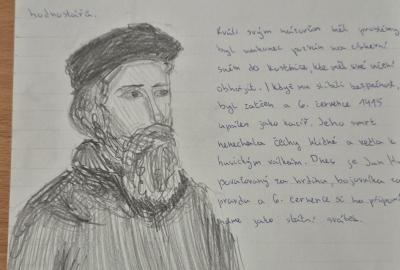 hodnostářů.
Kvůli svým názorům měl problémy
byl nakonec pozván na církevní
sněm do Kostnice, kde měl své učení
obhájit. I když mu slíbili bezpečnost,
byl zatčen a 6. července 1415
upálen jako kacíř. Jeho smrt
nenechala Čechy klidné a vedla k
husitským válkám. Dnes je Jan Hu
považovaný za hrdinu, bojovníka za
pravdu a 6. července si ho připomí
náme jako státní svátek.